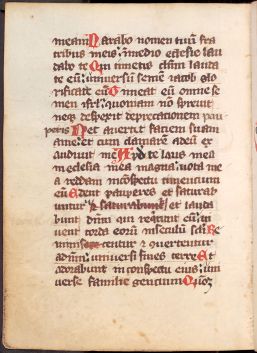 meam Narrabo nomen tuum fra
tribus meis: in medio ecclesie lau
dabo te Qui timetis dnm lauda
te eu: universu semen iacob glo
rificate eu Timeat eu omne se
men isrl: quoniam non sprevit
neq despexit deprecationem pau
peris Nec avertit faciem suam
a me: et cum clamare ad eu ex
audivit me Apd te laus mea
in ecclesia mea magna: vota me
a reddam in conspectu timentiu
eu Edent pauperes et saturab
untur & saturabunt et lauda
bunt dnm qui requirut eu: vi
vent corda eoru in seculu scli Re
miniscentur & convertentur
ad dnm: universi fines terre Et
adorabunt in conspectu eius: uni
verse familie gentium Qm